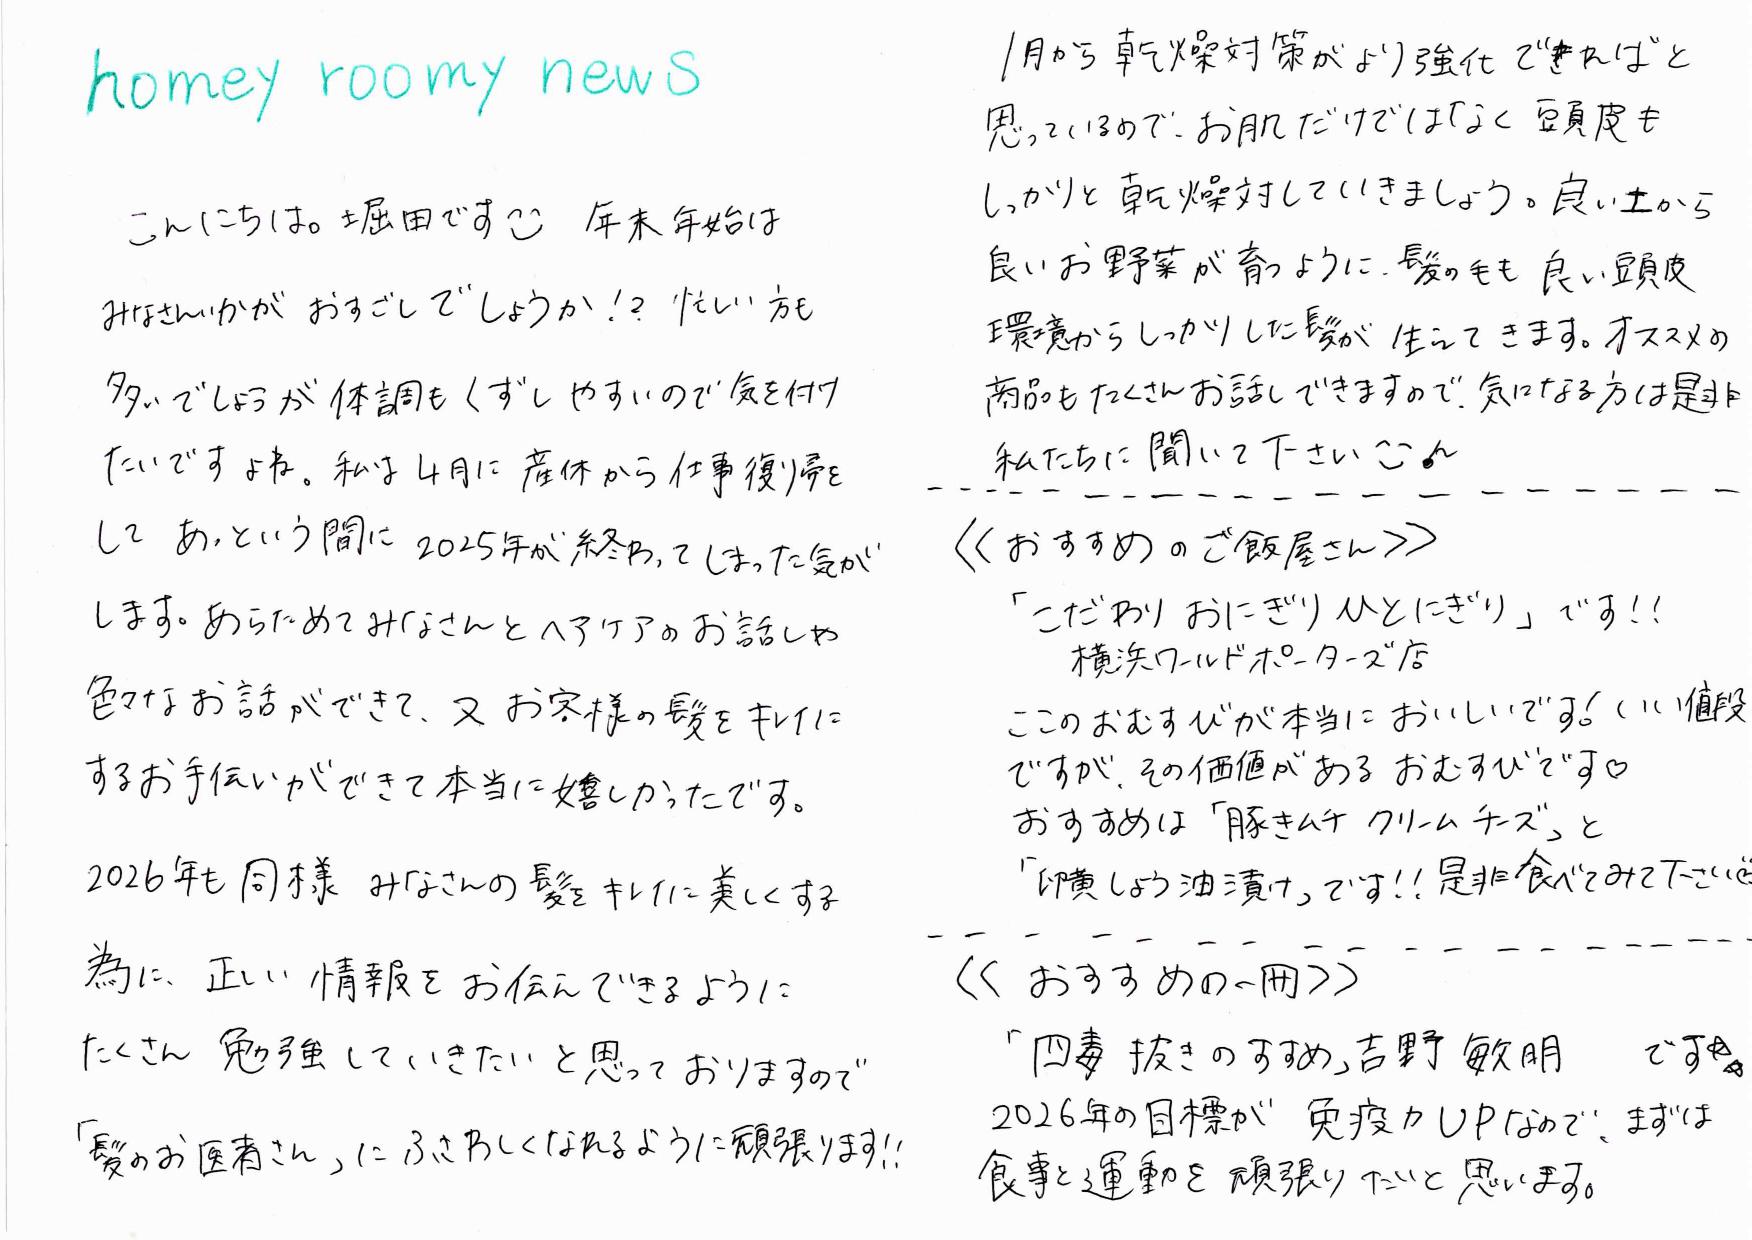 homey roomy news
こんにちは。堀田です 年末年始は
みなさんいかがおすごしでしょうか!? 忙しい方も
多いでしょうが体調もくずしやすいので気を付け
たいですよね。私は4月に産休から仕事復帰を
して あっという間に2025年が終わってしまった気が
します。あらためてみなさんとヘアケアのお話しや
色々なお話ができて、又お客様の髪をキレイに
するお手伝いができて本当に嬉しかったです。
2026年も同様 みなさんの髪をキレイに美しくする
為に、正しい情報をお伝えできるように
たくさん勉強していきたいと思っておりますので
「髪のお医者さん」にふさわしくなれるように頑張ります!!
1月から乾燥対策がより強化できればと
思っているので、お肌だけではなく頭皮も
しっかりと乾燥対していきましょう。良い土から
良いお野菜が育つように、髪の毛も良い頭皮
環境からしっかりした髪が生えてきます。オススメの
商品もたくさんお話しできますので、気になる方は是非
私たちに聞いて下さい
<<おすすめのご飯屋さん>>
「こだわりおにぎり ひとにぎり」です!!
横浜ワールドポーターズ店
ここのおむすびが本当においしいです! いい値段
ですが、その価値があるおむすびです♡
おすすめは「豚きムチ クリームチーズ」と
「卵黄しょう油漬け」です!! 是非食べてみて下さい
<<おすすめの一冊>>
「四毒抜きのすすめ」吉野敏明 です☆☆
2026年の目標が免疫力UPなので、まずは
食事と運動を頑張りたいと思います。